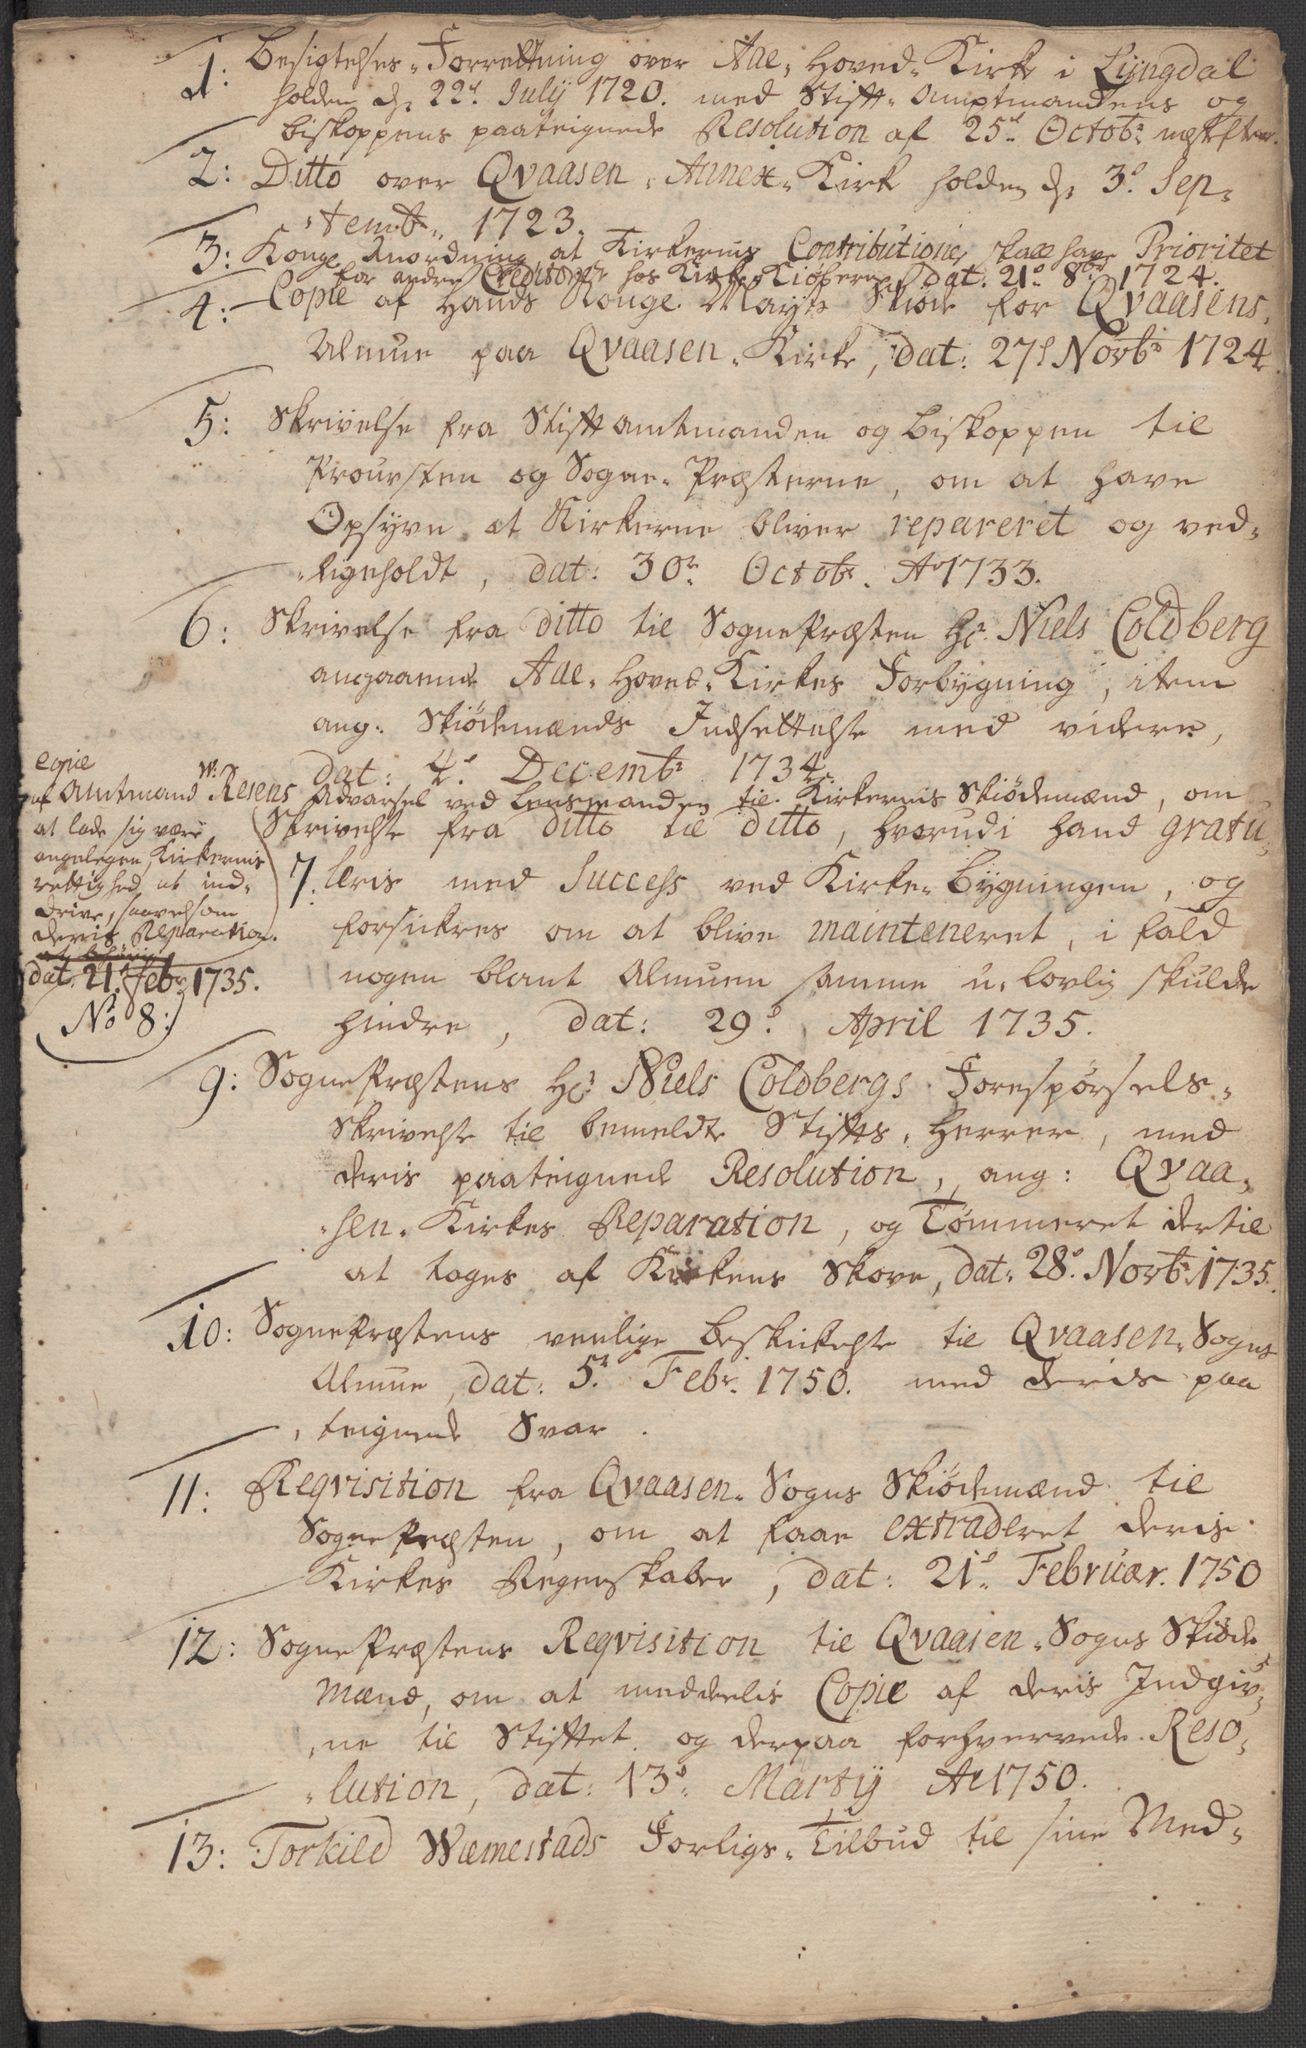 1: Besigtelses-Forrettning over Aae-Hoved-Kirke i Lijngdal
holden d. 22d. Julij 1720. med Stift-Amptmandens og
Biskoppens paateignede Resolution af 25d. Octobr. næstefter.
2: Ditto over Qvaasen-Annex-Kirk holden d. 3d. Sep-
-temb. 1723.
3: Konge. Anordning at Kirkernis Contributioner skal have Prioritet
for andre Creditorer hos Kirke-Kiøberne, dat. 21d. 8br 1724.
4: Copie af Hands Konge. Mayts Skiøde for Qvaasens,
Almue paa Qvaasen-Kirke, dat: 27d Novbr 1724
5: Skrivelse fra Stiftamtmanden og Biskoppen til
Prousten og Sogne-Præsterne, om at have
Opsyvn at Kirkerne bliver repareret og ved-
-ligeholdt, dat: 30te Octobr. Ao 1733.
6: Skrivelse fra ditto til SognePræsten Hr. Niels Coldberg
angaaende Aae-Hoved-Kirkes Forbygning, item
ang: Skiødemænds Indsettelse med videre,
dat: 4d. Decembr 1734.
copie
af Amtmand W: Resens Advarsel ved Lensmanden til Kirkernis Skiødemænd, om
at lade sig være
angelegen Kirkernis
rettighed at ind-
drive, saavelsom
deris Reparation.
dat. 21d. Febr. 1735.
No 8:
7: Skrivelse fra ditto til ditto, hvorudi hand gratu-
leris med Success ved Kirke-Bygningen, og
forsikres om at blive mainteneret, i fald
nogen blant Almuen samme u-lovlig skulde
hindre, dat: 29d. April 1735.
9: SognePræstens Hr. Niels Coldbergs Forespørsels-
Skrivelse til bemeldte Stifts-Herrer, med
deris paateignede Resolution, ang: Qvaa-
-sen-Kirkes Reparation, og Tømmeret dertil
at tages af Kirkens Skove, dat: 28d. Novbr. 1735.
10: SognePræstens venlige Beskikelse til Qvaasen-Sogns
Almue, dat: 5te Febr. 1750. med deris paa
-teignede Svar.
11: Reqvisition fra Qvaasen-Sogns Skiødemænd til
SognePræsten, om at faae extraderet deris
Kirkes Regenskaber, dat: 21d. Februar. 1750
12: SognePræstens Reqvisition til Qvaasen-Sogns Skiøde
Mænd, om at meddelis Copie af deris Indgiv-
-ne til Stiftet og derpaa forhvervede Reso-
-lution, dat: 13d. Martij Ao 1750.
13: Torkild Wæmestads Forligs-Tilbud til sine Med-